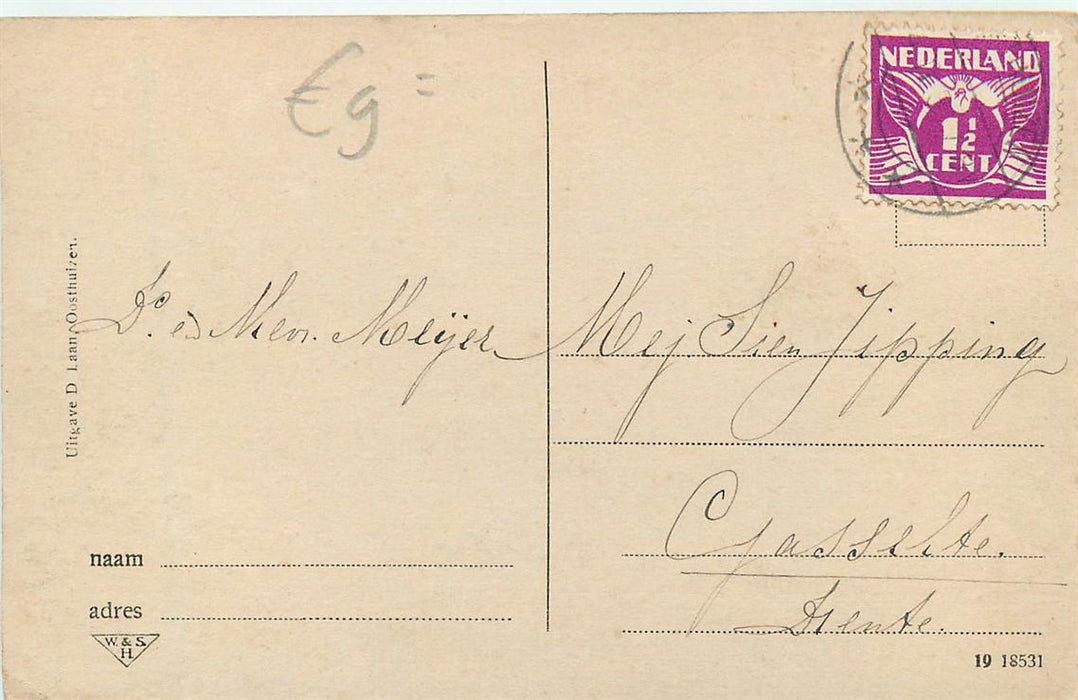 €9=
NEDERLAND
1½
CENT
Uitgave D. Laan, Oosthuizen.
Ds. en Mevr. Meijer
Mej Sien Jipping
Gasselte.
Drente.
naam
adres
W. & S.
H.
19 18531